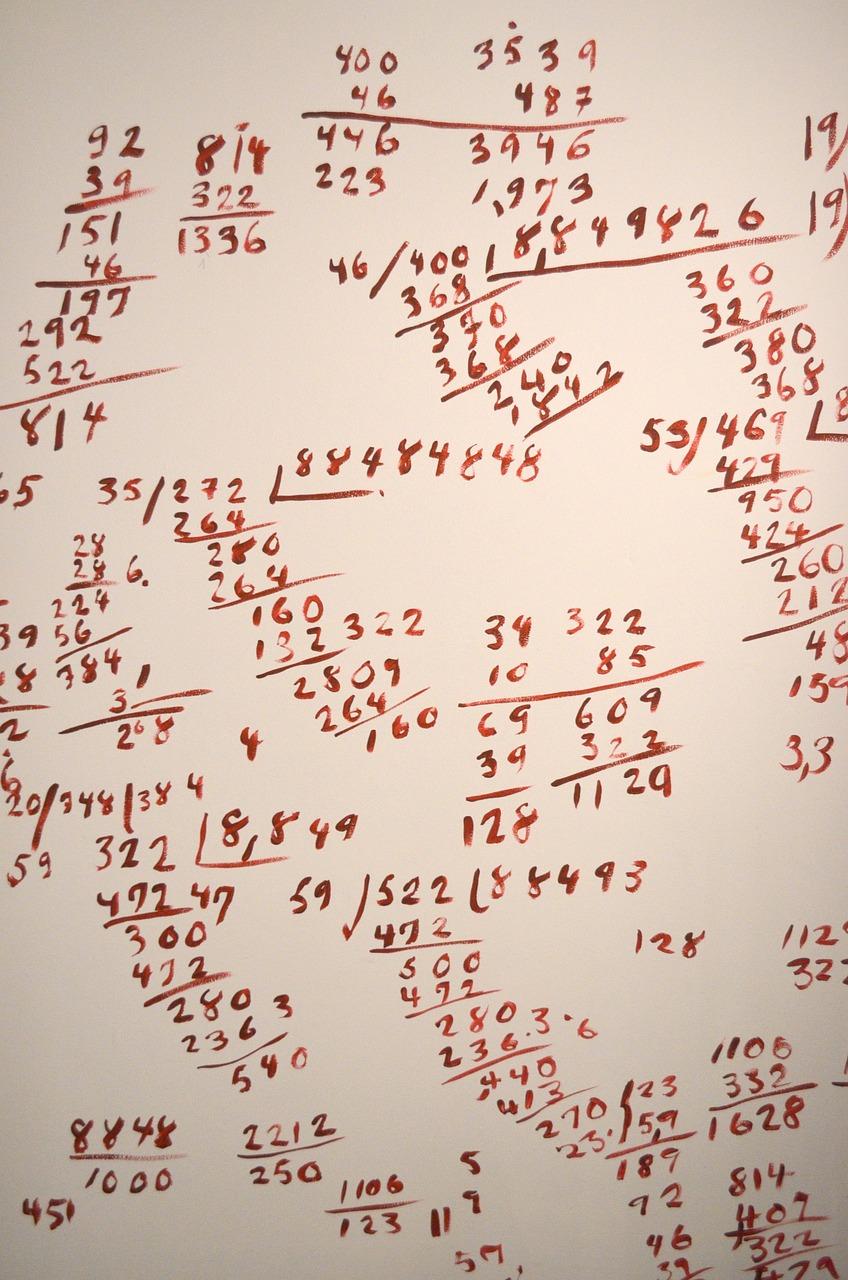 400 3539
46 487
446 3946
223 1,973
92 814
39 322
151 1336
46
197
292
522
814
46/400 18,849826
368
370
368
240
1842
360
322
380
368
53/469
429
950
424
260
212
48
159
3,3
19/
19)
65 35/272 88484848
264
280
264
160
132 322
2809
264
160
28
28 6.
224
56
784
31
268
4
39 322
10 85
69 609
39 322
128 1129
20/348/384
59 322 8,849
472 47
300
472
280 3
236 3
540
59/522 88493
472
500
472
280.3.6
236.3
440
413
270
23.
128 1129
322
1106
332
1628
123
159
189
92 814
46 407
39 322
8848 2212
1000 250
451
1106
123
5
11 9
57,